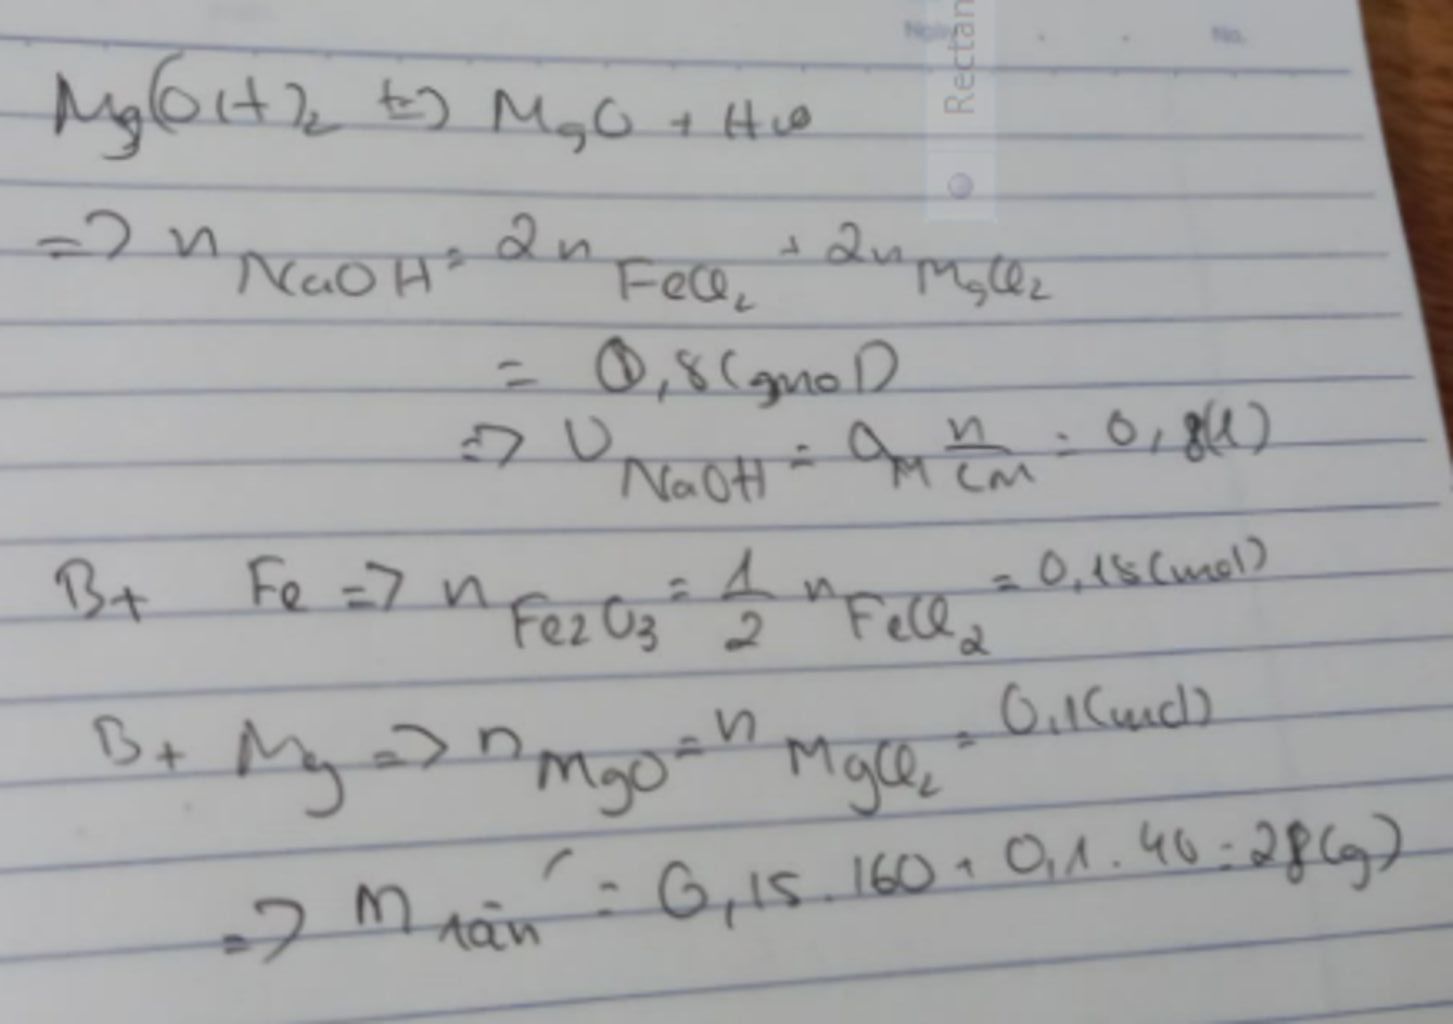 Ngày . . No.
Rectan
Mg(OH)2 t=> MgO + H2O
=> n NaOH = 2n FeCl2 + 2n MgCl2
= 0,8(mol)
=> V NaOH = n/CM = 0,8(l)
B+ Fe => n Fe2O3 = 1/2 n FeCl2 = 0,15(mol)
B+ Mg => n MgO = n MgCl2 = 0,1(mol)
=> m rắn = 0,15.160 + 0,1.40 = 28(g)